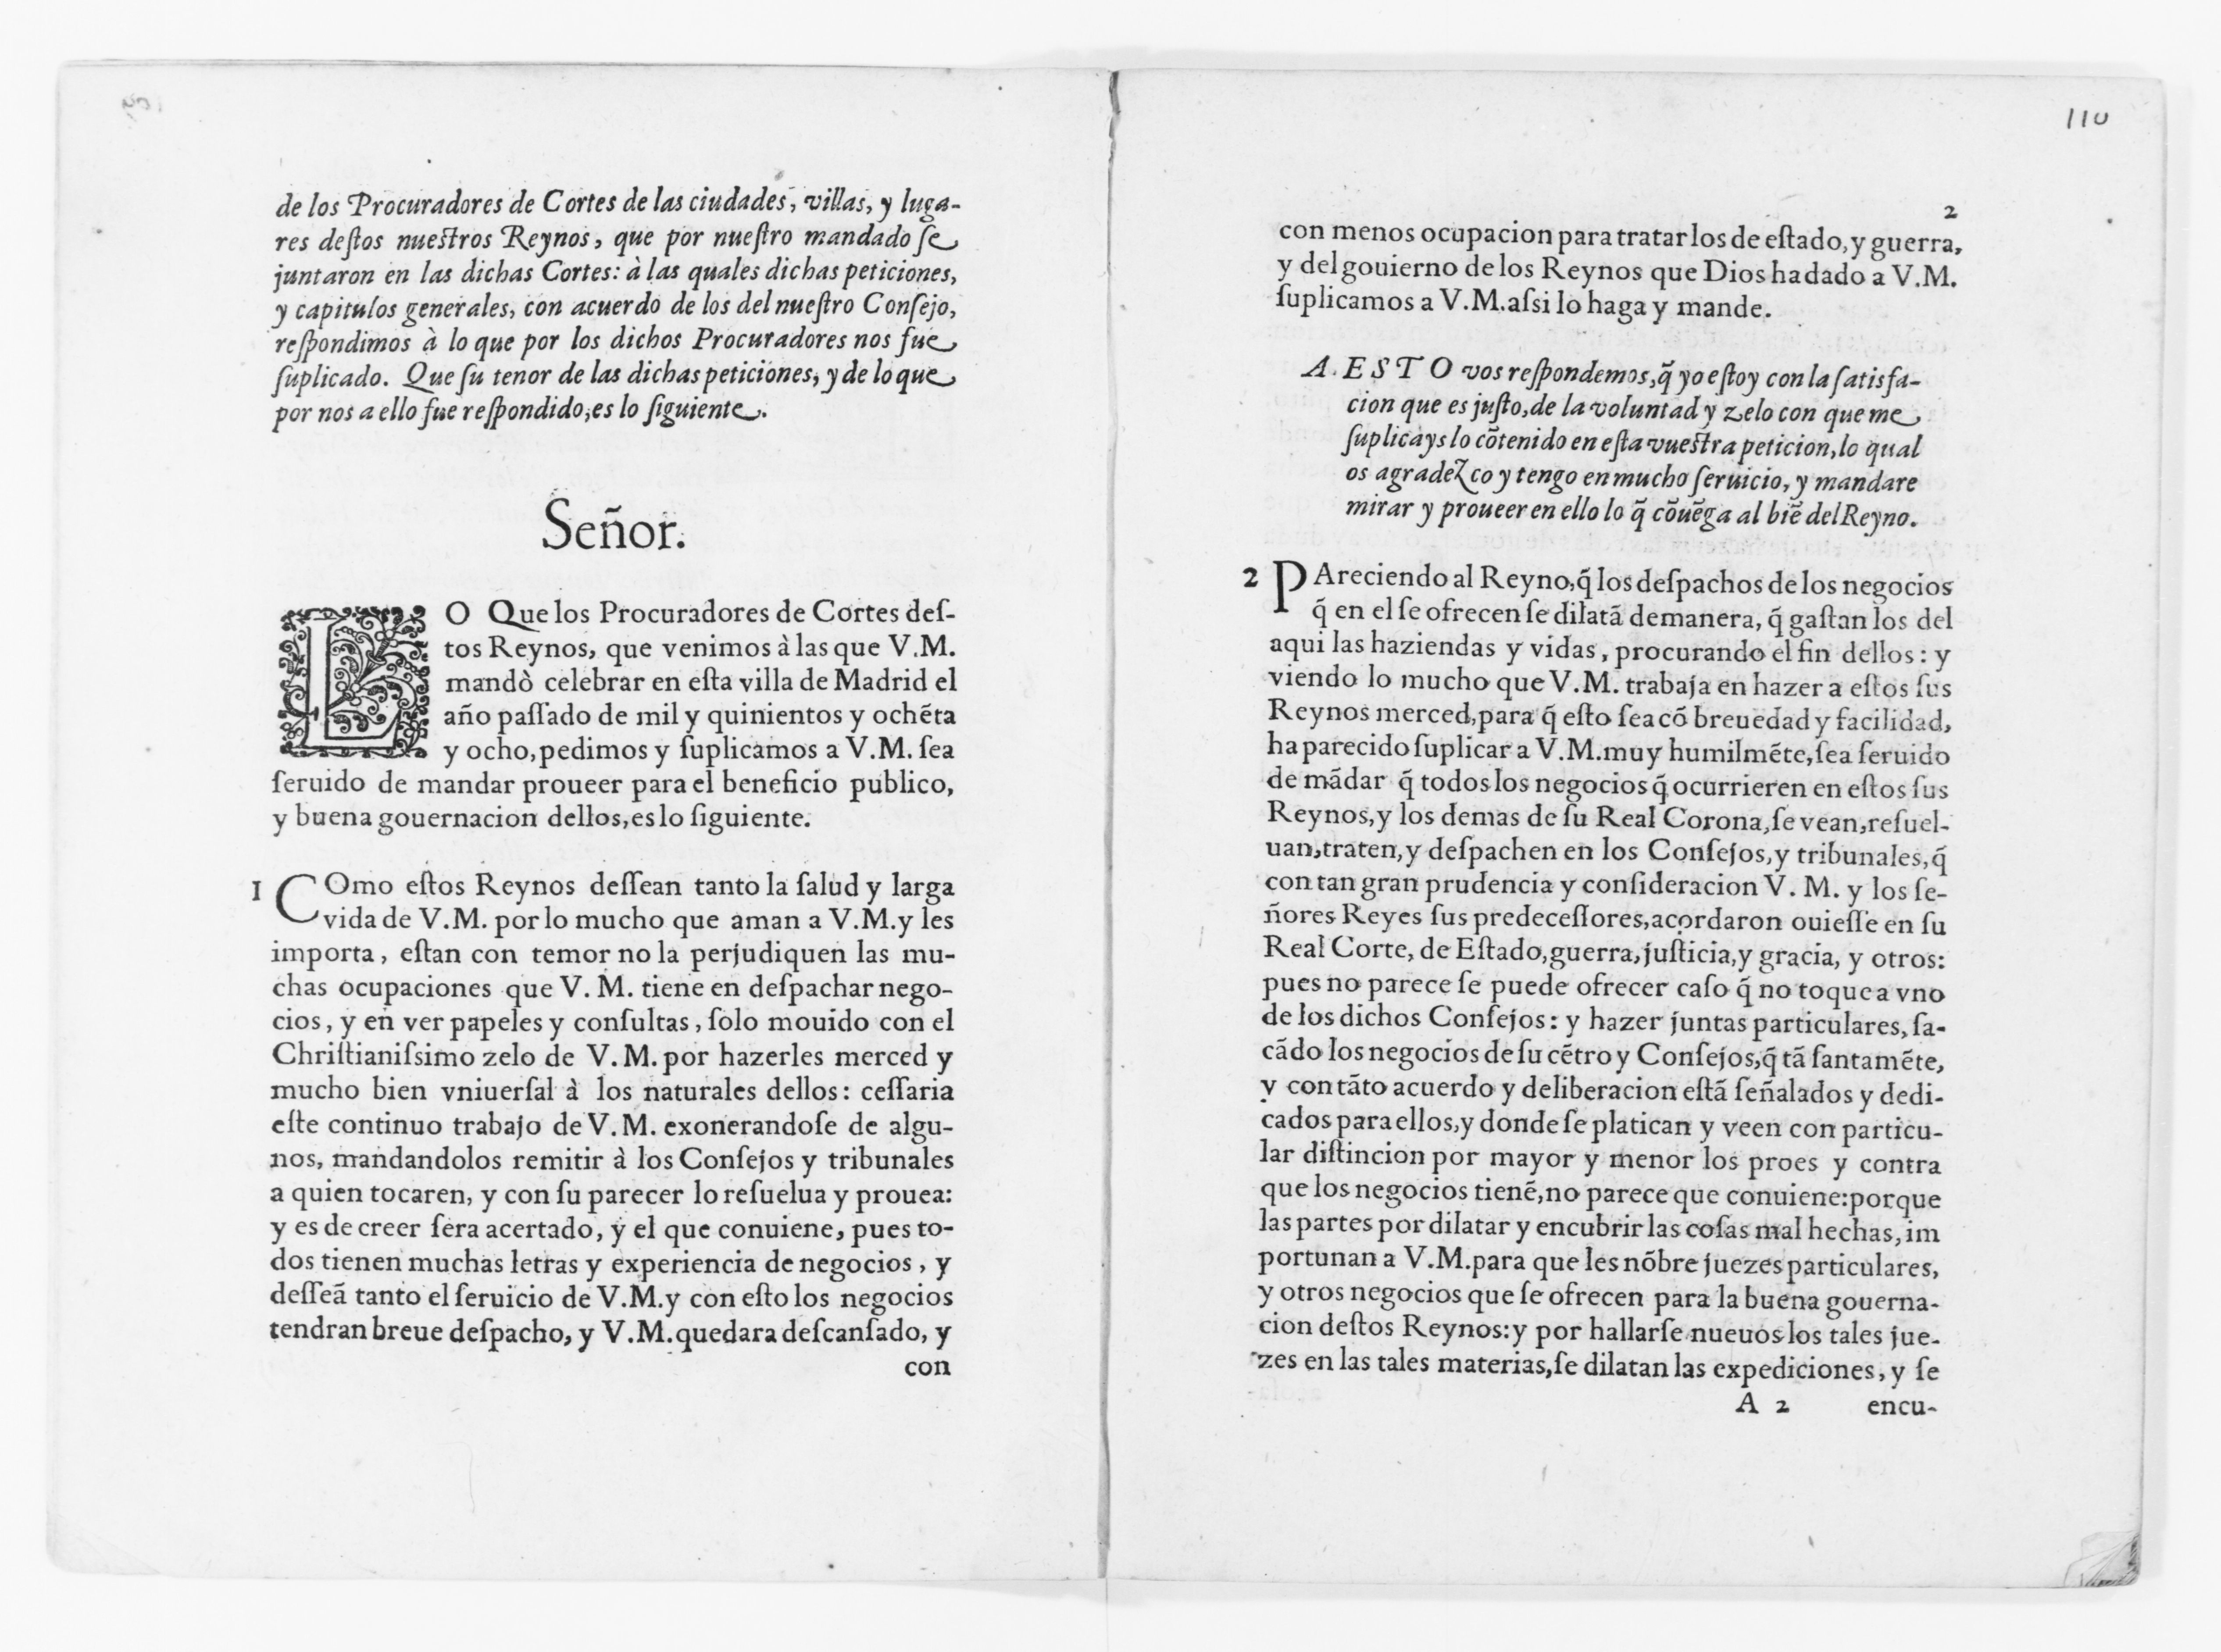 de los Procuradores de Cortes de las ciudades, villas, y luga-
res deſtos nueſtros Reynos, que por nueſtro mandado ſe
juntaron en las dichas Cortes: à las quales dichas peticiones,
y capitulos generales, con acuerdo de los del nueſtro Conſejo,
reſpondimos à lo que por los dichos Procuradores nos fue
ſuplicado. Que ſu tenor de las dichas peticiones, y de lo que
por nos a ello fue reſpondido, es lo ſiguiente.
Señor.
LO Que los Procuradores de Cortes deſ-
tos Reynos, que venimos à las que V.M.
mandò celebrar en eſta villa de Madrid el
año paſſado de mil y quinientos y ochẽta
y ocho, pedimos y ſuplicamos a V.M. ſea
ſeruido de mandar proueer para el beneficio publico,
y buena gouernacion dellos, es lo ſiguiente.
1 COmo eſtos Reynos deſſean tanto la ſalud y larga
vida de V.M. por lo mucho que aman a V.M. y les
importa, eſtan con temor no la perjudiquen las mu-
chas ocupaciones que V. M. tiene en deſpachar nego-
cios, y en ver papeles y conſultas, ſolo mouido con el
Chriſtianiſsimo zelo de V.M. por hazerles merced y
mucho bien vniuerſal à los naturales dellos: ceſſaria
eſte continuo trabajo de V.M. exonerandoſe de algu-
nos, mandandolos remitir à los Conſejos y tribunales
a quien tocaren, y con ſu parecer lo reſuelua y prouea:
y es de creer ſera acertado, y el que conuiene, pues to-
dos tienen muchas letras y experiencia de negocios, y
deſſeã tanto el ſeruicio de V.M. y con eſto los negocios
tendran breue deſpacho, y V.M. quedara deſcanſado, y
con
110
2
con menos ocupacion para tratar los de eſtado, y guerra,
y del gouierno de los Reynos que Dios ha dado a V.M.
ſuplicamos a V.M. aſsi lo haga y mande.
A ESTO vos reſpondemos, q̃ yo eſtoy con la ſatisfa-
cion que es juſto, de la voluntad y zelo con que me
ſuplicays lo cõtenido en eſta vueſtra peticion, lo qual
os agradezco y tengo en mucho ſeruicio, y mandare
mirar y proueer en ello lo q̃ cõuẽga al biẽ del Reyno.
2 PAreciendo al Reyno, q̃ los deſpachos de los negocios
q̃ en el ſe ofrecen ſe dilatã de manera, q̃ gaſtan los del
aqui las haziendas y vidas, procurando el fin dellos: y
viendo lo mucho que V.M. trabaja en hazer a eſtos ſus
Reynos merced, para q̃ eſto ſea cõ breuedad y facilidad,
ha parecido ſuplicar a V.M. muy humilmẽte, ſea ſeruido
de mãdar q̃ todos los negocios q̃ ocurrieren en eſtos ſus
Reynos, y los demas de ſu Real Corona, ſe vean, reſuel-
uan, traten, y deſpachen en los Conſejos, y tribunales, q̃
con tan gran prudencia y conſideracion V. M. y los ſe-
ñores Reyes ſus predeceſſores, acordaron ouieſſe en ſu
Real Corte, de Eſtado, guerra, juſticia, y gracia, y otros:
pues no parece ſe puede ofrecer caſo q̃ no toque a vno
de los dichos Conſejos: y hazer juntas particulares, ſa-
cãdo los negocios de ſu cẽtro y Conſejos, q̃ tã ſantamẽte,
y con tãto acuerdo y deliberacion eſtã ſeñalados y dedi-
cados para ellos, y donde ſe platican y veen con particu-
lar diſtincion por mayor y menor los proes y contra
que los negocios tienẽ, no parece que conuiene: porque
las partes por dilatar y encubrir las coſas mal hechas, im
portunan a V.M. para que les nõbre juezes particulares,
y otros negocios que ſe ofrecen para la buena gouerna-
cion deſtos Reynos: y por hallarſe nueuos los tales jue-
zes en las tales materias, ſe dilatan las expediciones, y ſe
A 2 encu-